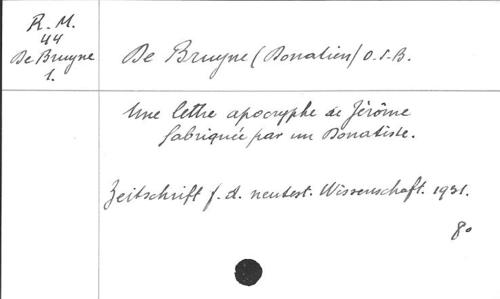 R. M.
44
De Bruyne
1.
De Bruyne (Donatien) O.S.B.
Une lettre apocryphe de Jérôme
fabriquée par un Donatiste.
Zeitschrift f. d. neutest. Wissenschaft. 1931.
8°